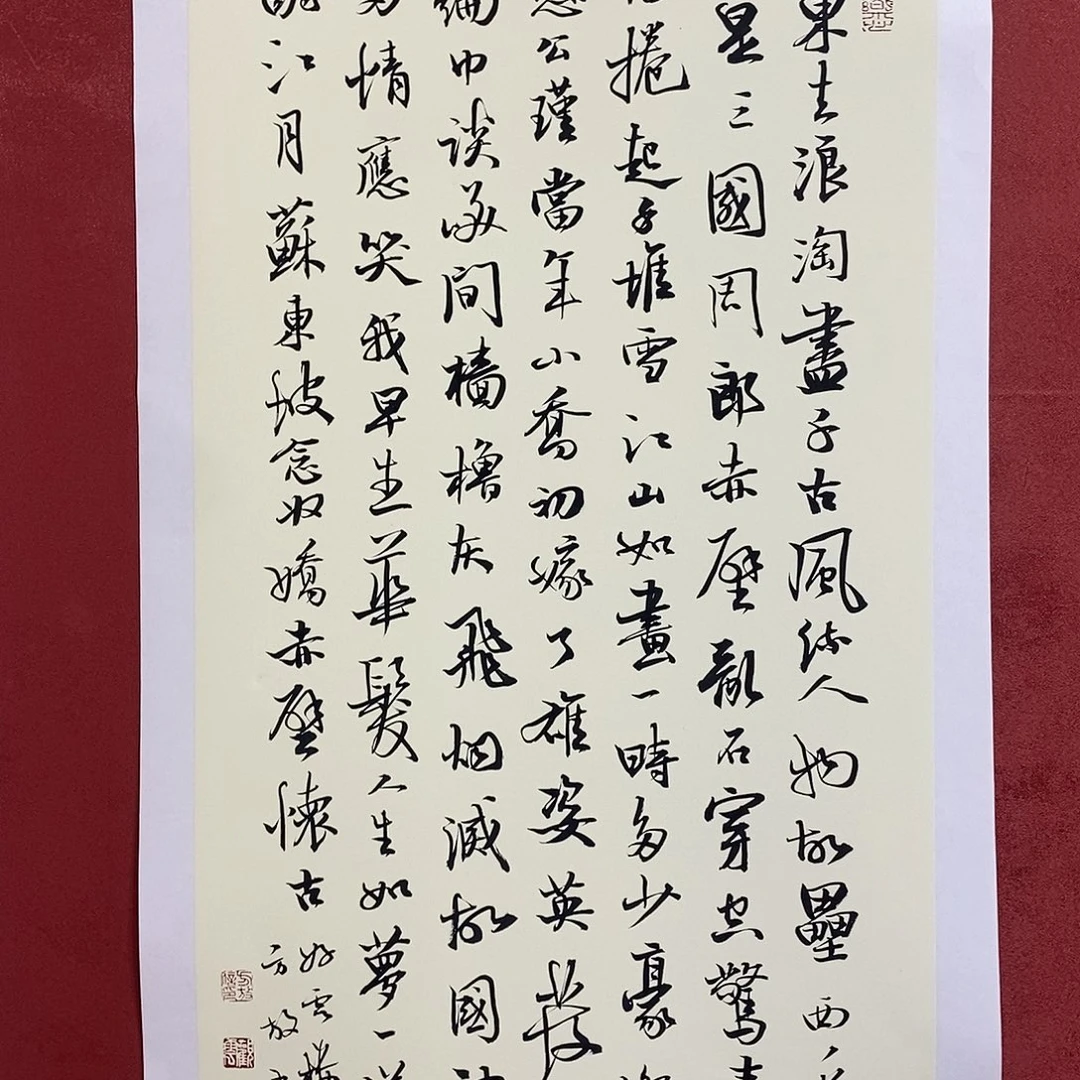 東去浪淘盡千古風流人物故壘西
是三國周郎赤壁亂石穿空驚
捲起千堆雪江山如畫一時多少豪
公瑾當年小喬初嫁了雄姿英發
綸巾談笑間檣櫓灰飛烟滅故國
多情應笑我早生華髮人生如夢一
江月蘇東坡念奴嬌赤壁懷古
好雲樓
方放